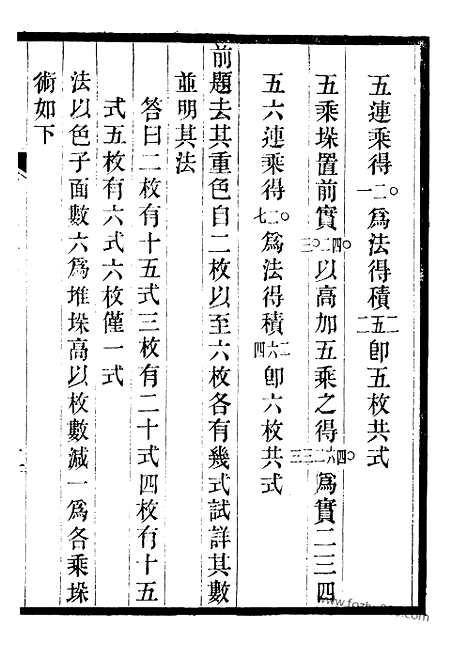 五連乘得一二〇爲法得積二五二即五枚共式
五乘垜置前實三〇二四〇以高加五乘之得三三二六四〇爲實二三四
五六連乘得七二〇爲法得積四六二即六枚共式
前題去其重色自二枚以至六枚各有幾式試詳其數
並明其法
答曰二枚有十五式三枚有二十式四枚有十五
式五枚有六式六枚僅一式
法以色子面數六爲堆垜高以枚數減一爲各乘垜
術如下